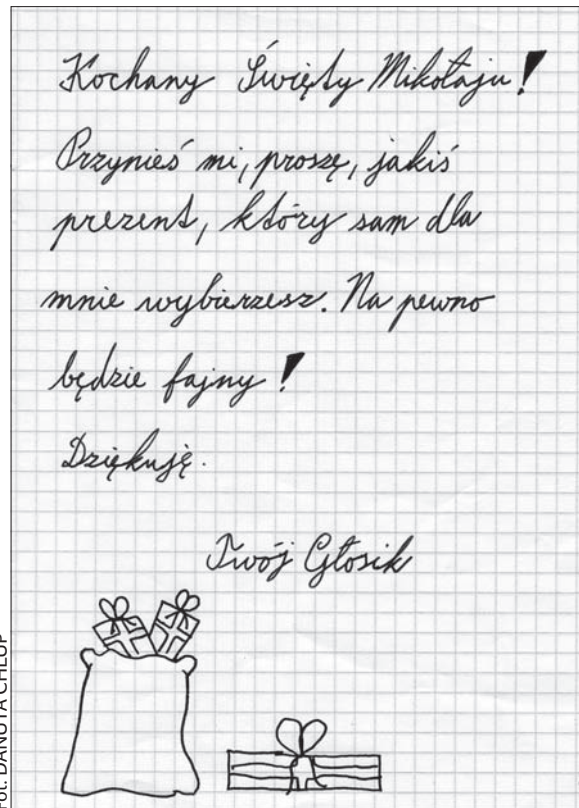 Kochany Święty Mikołaju!
Przynieś mi, proszę, jakiś
prezent, który sam dla
mnie wybierzesz. Na pewno
będzie fajny!
Dziękuję.
Twój Głosik
Fot. DANUTA CHLUP